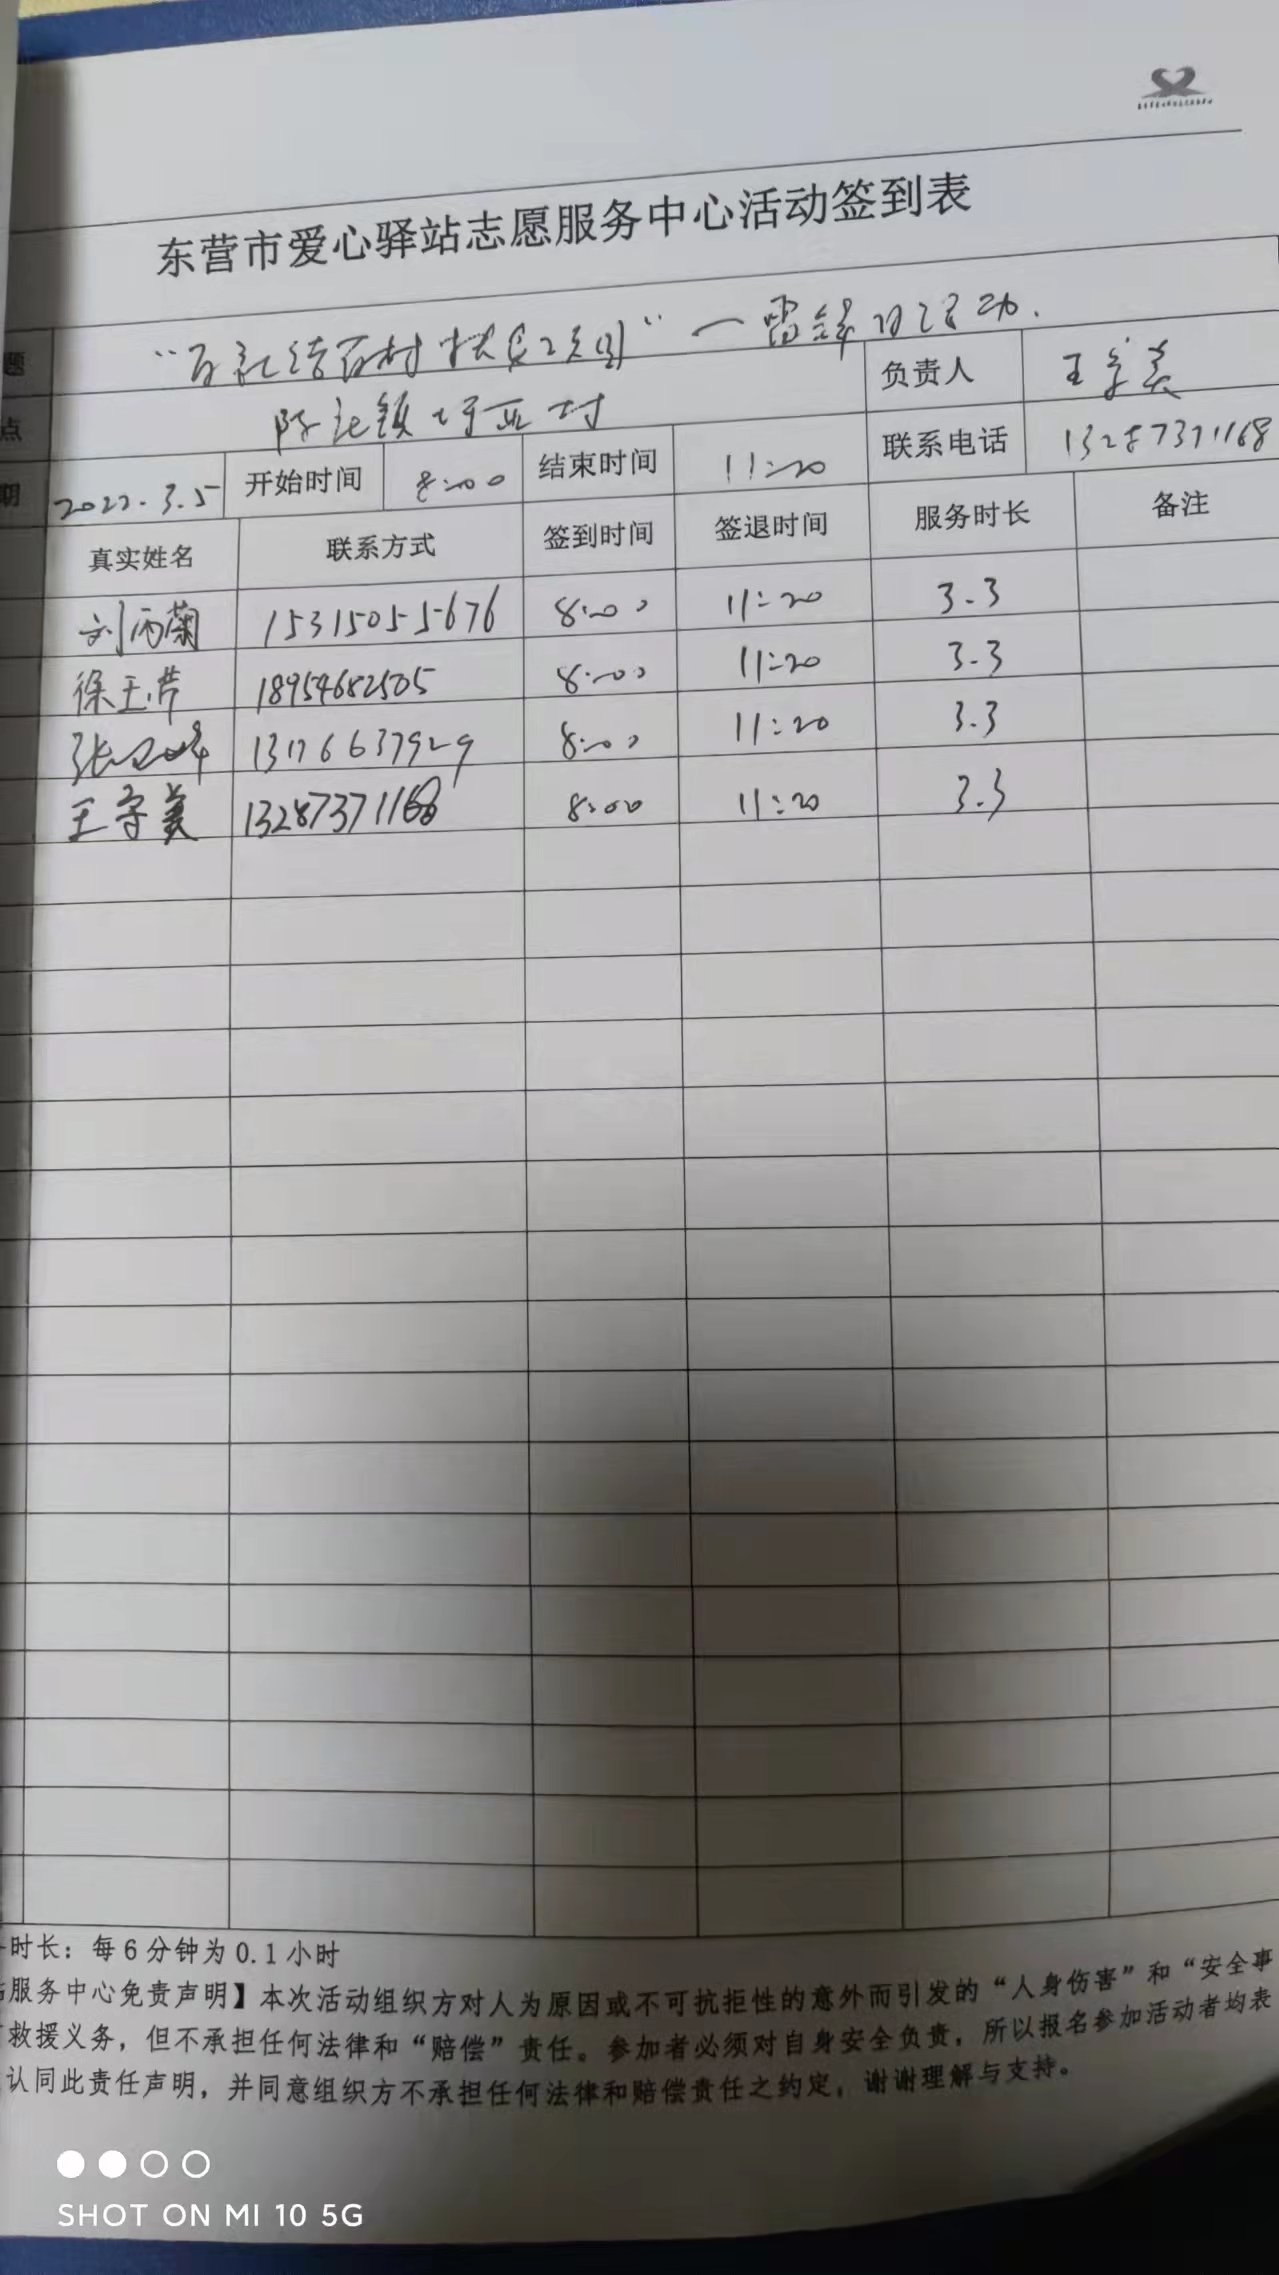 东营市爱心驿站志愿服务中心活动签到表
题 “百社结百村扶贫项目”一雷锋日活动.
点 陈庄镇 村 负责人 王守美
期 2022.3.5 开始时间 8:00 结束时间 11:20 联系电话 13287371168
真实姓名 联系方式 签到时间 签退时间 服务时长 备注
刘丙菊 15315055676 8:00 11:20 3.3
徐玉芹 18954682505 8:00 11:20 3.3
张 8:00 11:20 3.3
王守美 13287371168 8:00 11:20 3.3
时长：每6分钟为0.1小时
服务中心免责声明】本次活动组织方对人为原因或不可抗拒性的意外而引发的“人身伤害”和“安全事
救援义务，但不承担任何法律和“赔偿”责任。参加者必须对自身安全负责，所以报名参加活动者均表
认同此责任声明，并同意组织方不承担任何法律和赔偿责任之约定，谢谢理解与支持。
SHOT ON MI 10 5G